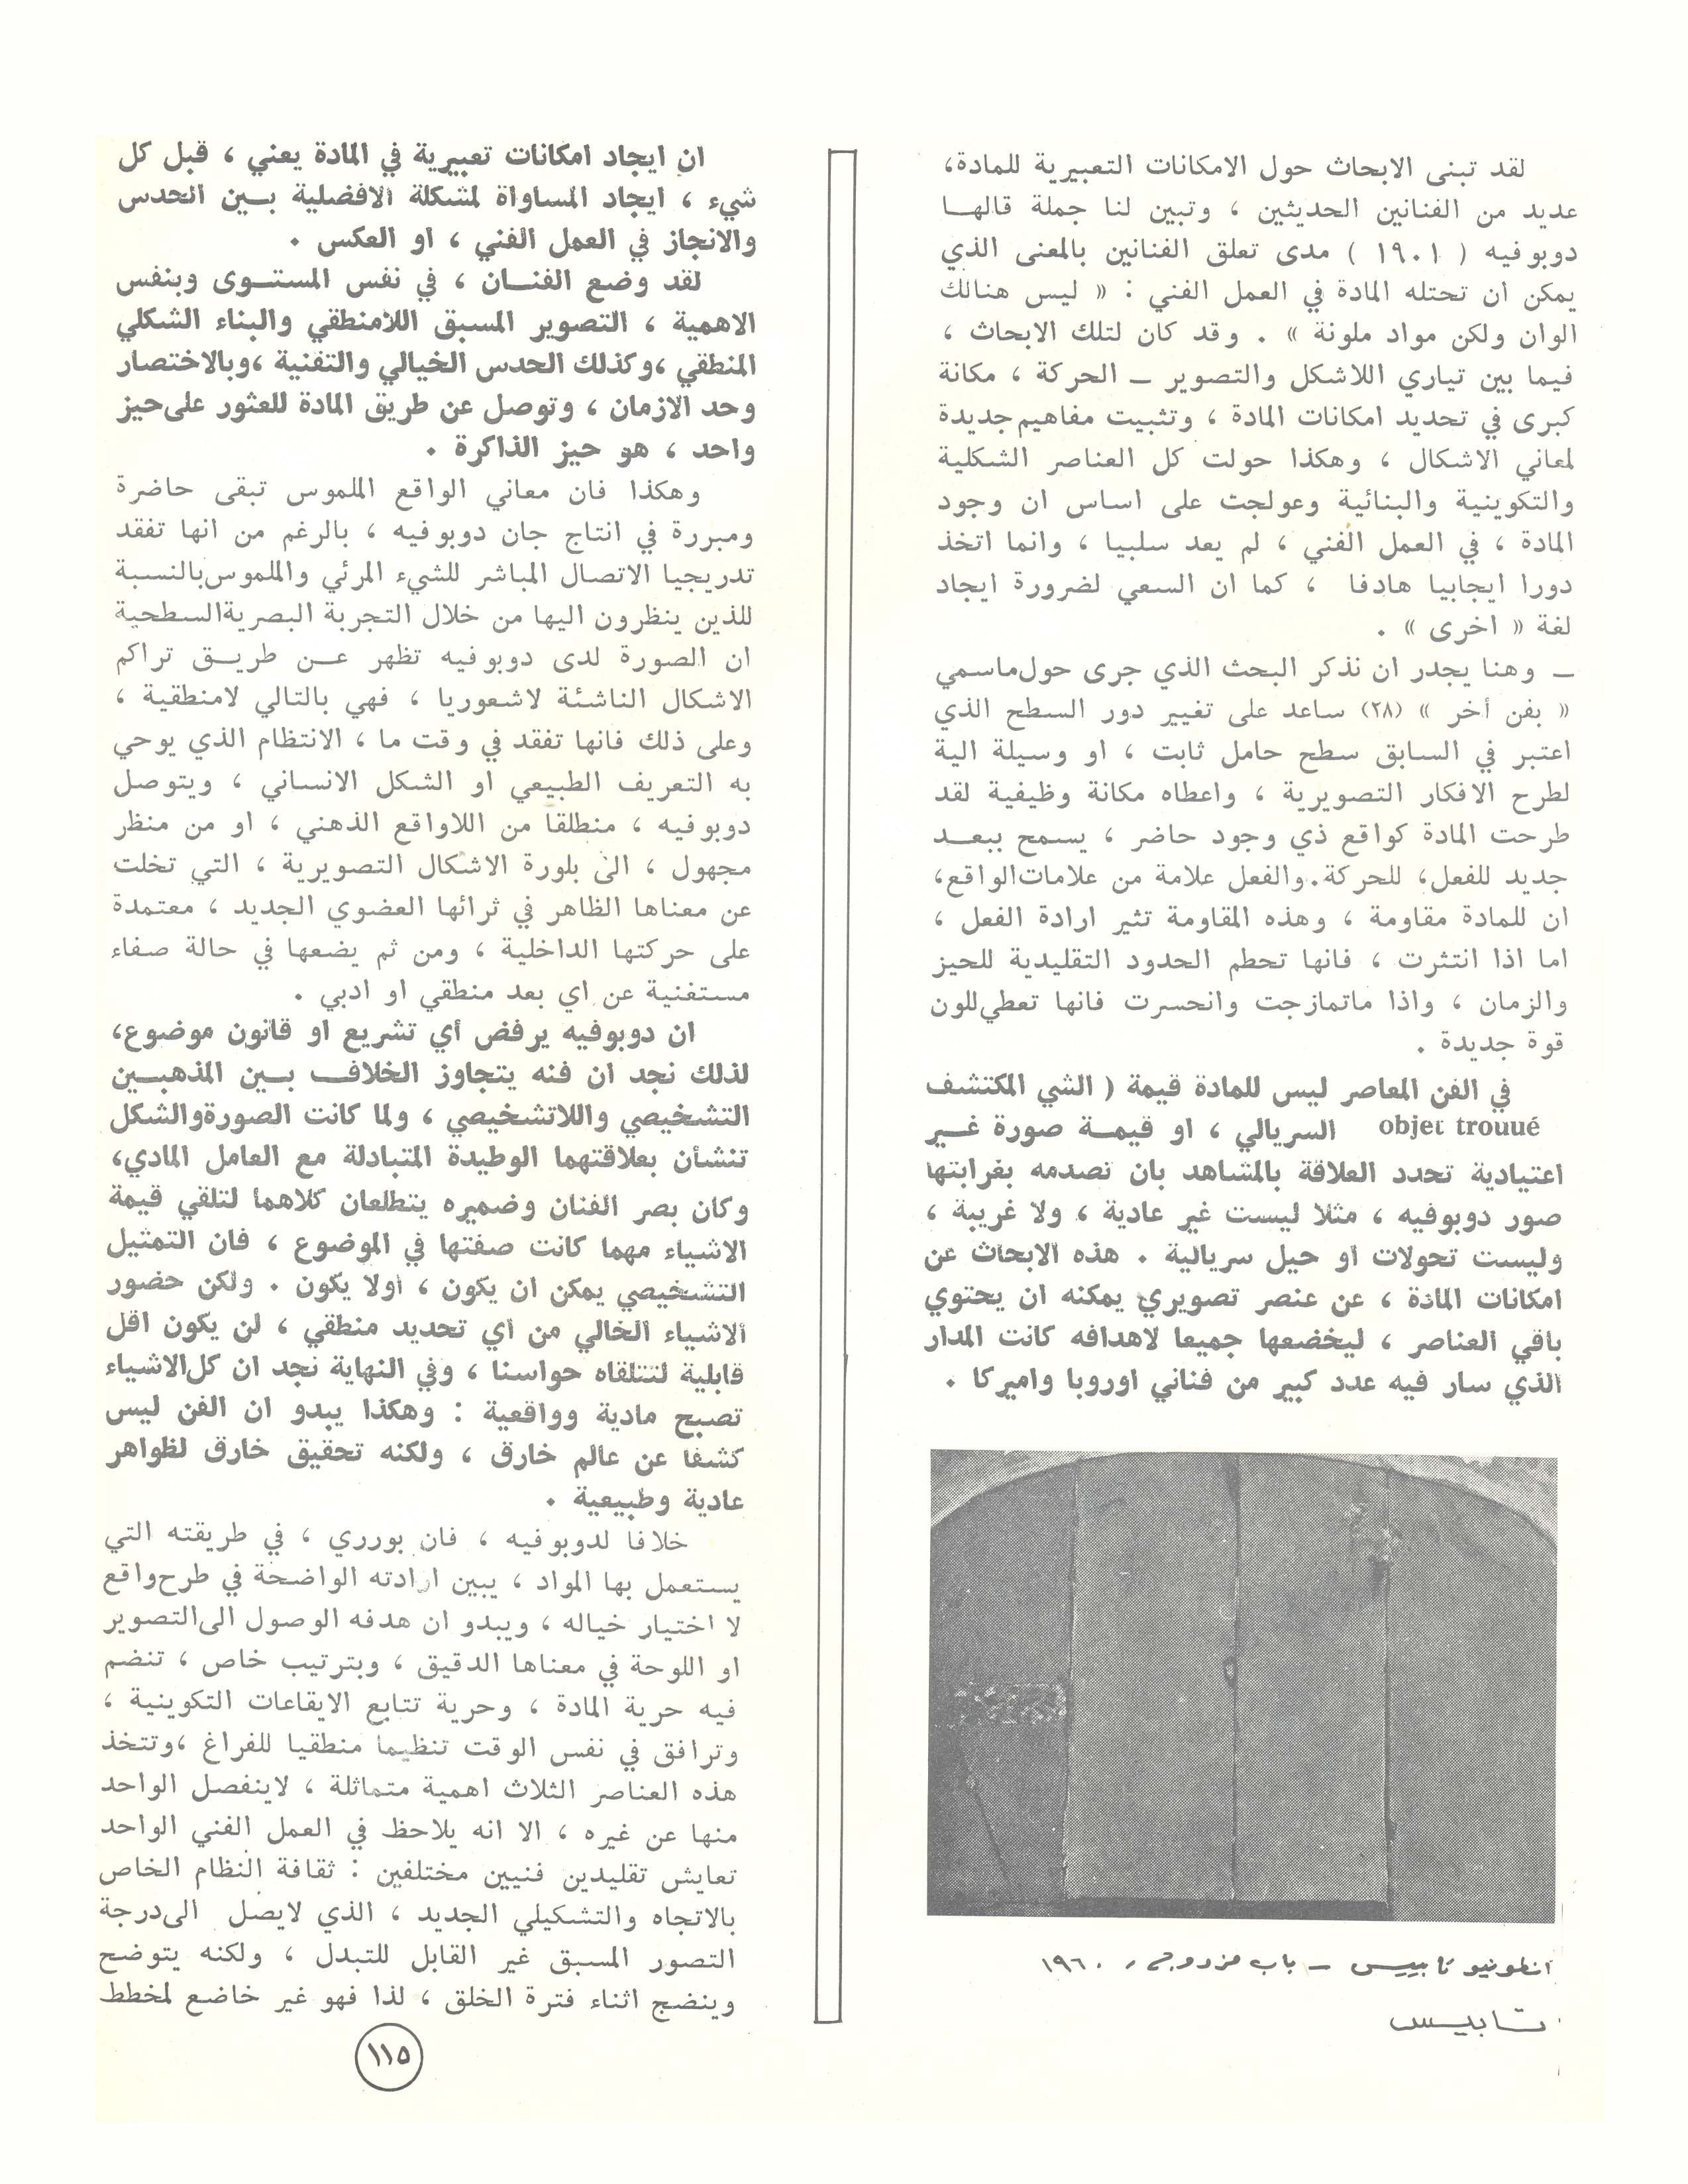 لقد تبنى الابحاث حول الامكانات التعبيرية للمادة،
عديد من الفنانين الحديثين ، وتبين لنا جملة قالهــا
دوبوفيه ( ١٩٠١ ) مدى تعلق الفنانين بالمعنى الذي
يمكن ان تحتله المادة في العمل الفني : « ليس هنالك
الوان ولكن مواد ملونة » . وقد كان لتلك الابحاث ،
فيما بين تياري اللاشكل والتصوير ــ الحركة ، مكانة
كبرى في تحديد امكانات المادة ، وتثبيت مفاهيم جديدة
لمعاني الاشكال ، وهكذا حولت كل العناصر الشكلية
والتكوينية والبنائية وعولجت على اساس ان وجود
المادة ، في العمل الفني ، لم يعد سلبيا ، وانما اتخذ
دورا ايجابيا هادفا ، كما ان السعي لضرورة ايجاد
لغة « اخرى » .
ــ وهنا يجدر ان نذكر البحث الذي جرى حول ماسمي
« بفن أخر » (٢٨) ساعد على تغيير دور السطح الذي
اعتبر في السابق سطح حامل ثابت ، او وسيلة الية
لطرح الافكار التصويرية ، واعطاه مكانة وظيفية لقد
طرحت المادة كواقع ذي وجود حاضر ، يسمح ببعــد
جديد للفعل، للحركة. والفعل علامة من علامات الواقع،
ان للمادة مقاومة ، وهذه المقاومة تثير ارادة الفعل ،
اما اذا انتثرت ، فانها تحطم الحدود التقليدية للحيز
والزمان ، واذا ماتمازجت وانحسرت فانها تعطي للون
قوة جديدة .
في الفن المعاصر ليس للمادة قيمة ( الشي المكتشف
objet trouué السريالي ، او قيمــة صورة غــير
اعتيادية تحدد العلاقة بالمشاهد بان تصدمه بغرابتها
صور دوبوفيه ، مثلا ليست غير عادية ، ولا غريبة ،
وليست تحولات او حيل سريالية . هذه الابحاث عن
امكانات المادة ، عن عنصر تصويري يمكنه ان يحتوي
باقي العناصر ، ليخضعها جميعا لاهدافه كانت المدار
الذي سار فيه عدد كبير من فناني اوروبا واميركا .
انطونيو تابييس ــ باب مزدوج ، ١٩٦٠
تــابيــس
ان ايجاد امكانات تعبيرية في المادة يعني ، قبل كل
شيء ، ايجاد المساواة لمشكلة الافضلية بــين الحدس
والانجاز في العمل الفني ، او العكس .
لقد وضع الفنــان ، في نفس المستــوى وبنفس
الاهمية ، التصوير المسبق اللامنطقي والبناء الشكلي
المنطقي ،وكذلك الحدس الخيالي والتقنية ،وبالاختصار
وحد الازمان ، وتوصل عن طريق المادة للعثور على حيز
واحد ، هو حيز الذاكرة .
وهكذا فان معاني الواقع الملموس تبقى حاضرة
ومبررة في انتاج جان دوبوفيه ، بالرغم من انها تفقد
تدريجيا الاتصال المباشر للشيء المرئي والملموس بالنسبة
للذين ينظرون اليها من خلال التجربة البصرية السطحية
ان الصورة لدى دوبوفيه تظهر عــن طريــق تراكم
الاشكال الناشئة لاشعوريا ، فهي بالتالي لامنطقية ،
وعلى ذلك فانها تفقد في وقت ما ، الانتظام الذي يوحي
به التعريف الطبيعي او الشكل الانساني ، ويتوصل
دوبوفيه ، منطلقا من اللاواقع الذهني ، او من منظر
مجهول ، الى بلورة الاشكال التصويرية ، التي تخلت
عن معناها الظاهر في ثرائها العضوي الجديد ، معتمدة
على حركتها الداخلية ، ومن ثم يضعها في حالة صفاء
مستغنية عن اي بعد منطقي او ادبي .
ان دوبوفيه يرفض أي تشريع او قانون موضوع،
لذلك نجد ان فنه يتجاوز الخلاف بــين المذهبــين
التشخيصي واللاتشخيصي ، ولما كانت الصورة والشكل
تنشأن بعلاقتهما الوطيدة المتبادلة مع العامل المادي،
وكان بصر الفنان وضميره يتطلعان كلاهما لتلقي قيمة
الاشياء مهما كانت صفتها في الموضوع ، فان التمثيل
التشخيصي يمكن ان يكون ، اولا يكون . ولكن حضور
الاشياء الخالي من أي تحديد منطقي ، لن يكون اقل
قابلية لتتلقاه حواسنا ، وفي النهاية نجد ان كل الاشياء
تصبح مادية وواقعية : وهكذا يبدو ان الفن ليس
كشفا عن عالم خارق ، ولكنه تحقيق خارق لظواهر
عادية وطبيعية .
خلافا لدوبوفيه ، فان بورري ، في طريقته التي
يستعمل بها المواد ، يبين ارادته الواضحة في طرح واقع
لا اختيار خياله ، ويبدو ان هدفه الوصول الى التصوير
او اللوحة في معناها الدقيق ، وبترتيب خاص ، تنضم
فيه حرية المادة ، وحرية تتابع الايقاعات التكوينية ،
وترافق في نفس الوقت تنظيما منطقيا للفراغ ،وتتخذ
هذه العناصر الثلاث اهمية متماثلة ، لاينفصل الواحد
منها عن غيره ، الا انه يلاحظ في العمل الفني الواحد
تعايش تقليدين فنيين مختلفين : ثقافة النظام الخاص
بالاتجاه والتشكيلي الجديد ، الذي لايصل الى درجة
التصور المسبق غير القابل للتبدل ، ولكنه يتوضح
وينضج اثناء فترة الخلق ، لذا فهو غير خاضع لمخطط
١١٥